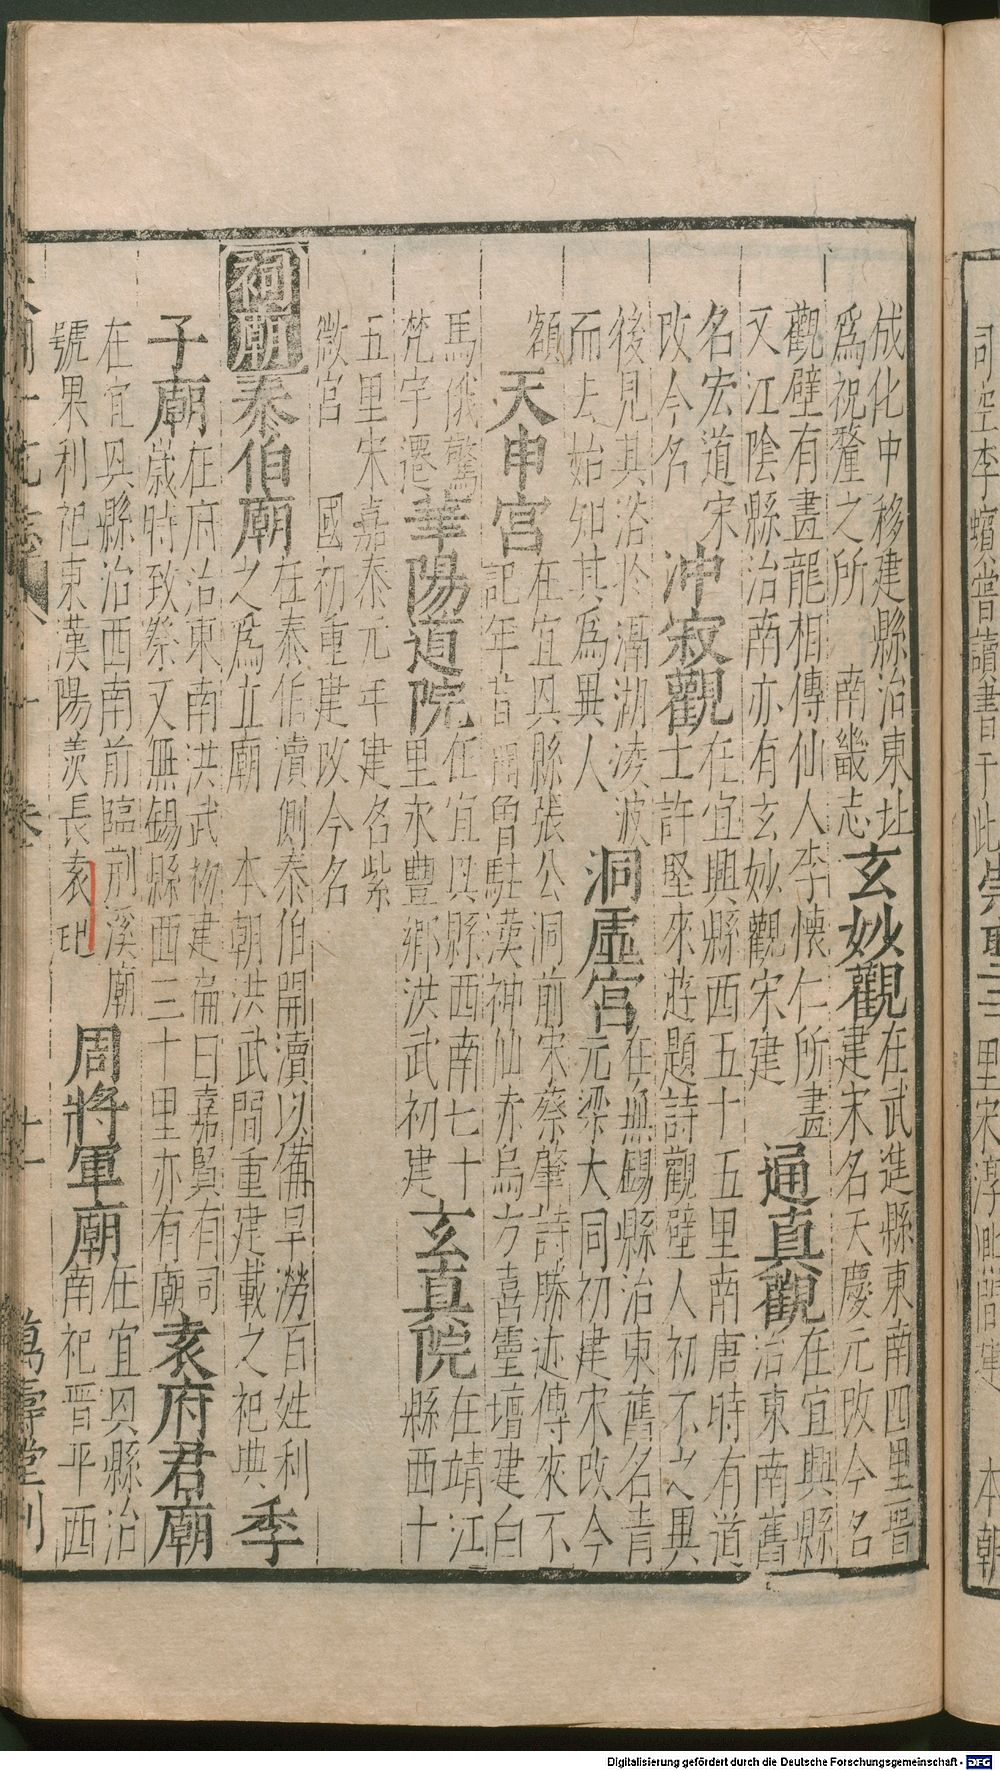 成化中移建縣治東址
爲祝釐之所 南畿志
玄妙觀
在武進縣東南四里晉
建宋名天慶元改今名
觀壁有畫龍相傳仙人李懷仁所畫
又江陰縣治南亦有玄妙觀宋建
通真觀
在宜興縣
治東南舊
名宏道宋
改今名
沖寂觀
在宜興縣西五十五里南唐時有道
士許堅來遊題詩觀壁人初不之異
後見其浴於滆湖凌波
而去始知其爲異人
洞虛宮
在無錫縣治東舊名青
元梁大同初建宋改今
額
天申宮
在宜興縣張公洞前宋蔡肇詩勝迹傳來不
記年昔聞曾駐漢神仙赤烏方喜靈壇建白
馬俄驚
梵宇遷
華陽道院
在宜興縣西南七十
里永豐鄉洪武初建
玄真院
在靖江
縣西十
五里宋嘉泰元年建名紫
微宮 國初重建改今名
祠廟
泰伯廟
在泰伯瀆側泰伯開瀆以備旱澇百姓利
之爲立廟 本朝洪武間重建載之祀典
季
子廟
在府治東南洪武初建扁曰嘉賢有司
歲時致祭又無錫縣西三十里亦有廟
袁府君廟
在宜興縣治西南前臨荊溪廟
號果利祀東漢陽羨長袁玘
周將軍廟
在宜興縣治
南祀晉平西
萬壽堂刊
司空李蠙嘗讀書于此
崇聖
里宋淳熙間建
本朝